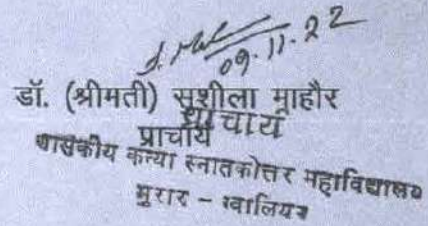 09.11.22
डॉ. (श्रीमती) सुशीला माहौर
प्राचार्य
प्राचार्य
शासकीय कन्या स्नातकोत्तर महाविद्यालय
मुरार - ग्वालियर